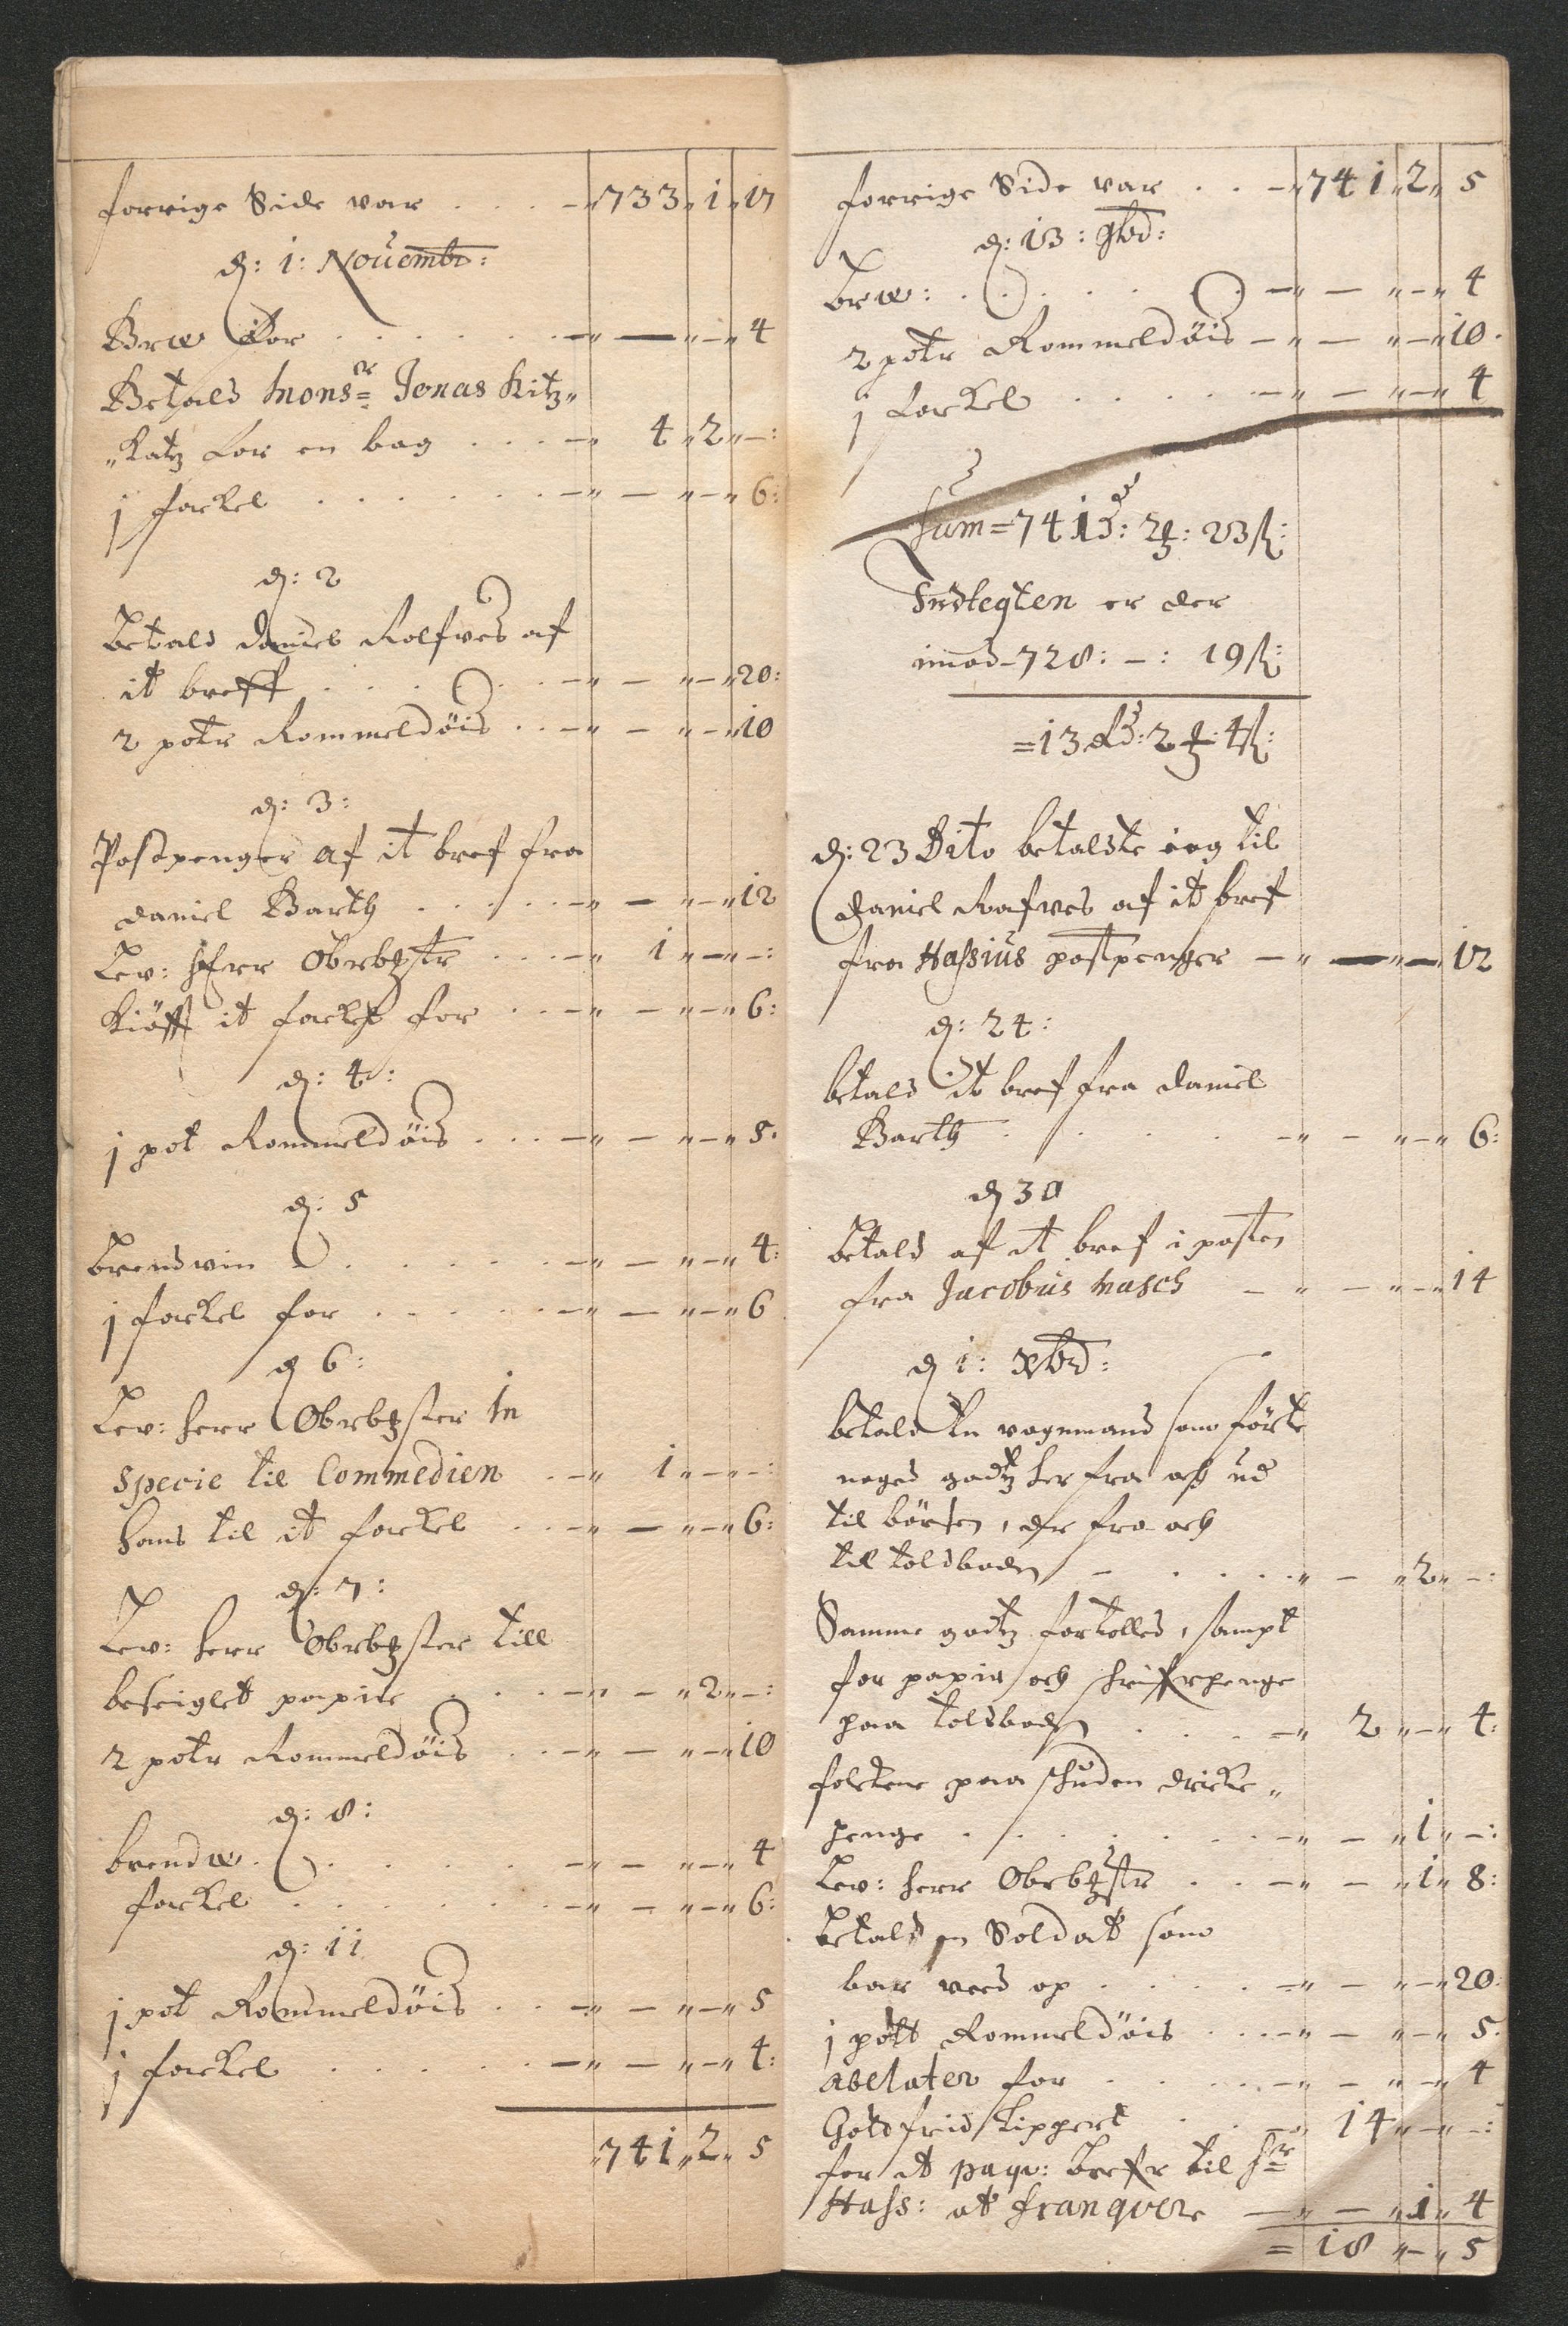 forrige Side var . . . – " 733 " 1 " 17
d: 1: Novembr:
Brw for . . . . . . – " — " – " 4
Betald Mons:r Jonas Kitz"
"Katz for en bag . . . – " 4 " 2 " –:
j fackel . . . . . . – " – " – " 6:
d: 2
betald Daniel Rolfves af
it breff . . . . . . – " – " – " 20:
2 potr Rommeldöis . . – " – " – " 10
d: 3:
Postpenger af it bref fra
Daniel Barth . . . . . – " – " – " 12
Lev: Herr Obrbtzstr . . . – " 1 " – " –:
Kiöfft it fackel for . . – " – " – " 6:
d: 4:
j pot Rommeldöis . . . – " – " – " 5.
d: 5
brendvin . . . . . . – " – " – " 4:
j fackel for . . . . . – " – " – " 6
d 6:
Lev: herr Obrbtzster in
specie til Commedien . – " 1 " – " –:
hans til it fackel . . – " – " – " 6:
d: 7:
Lev: herr Obrbtzster till
beseiglet papire . . . – " – " 2 " –:
2 potr Rommeldöis . . – " – " – " 10
d: 8:
brendw. . . . . . . – " – " – " 4
fackel . . . . . . . – " – " – " 6:
d: 11
j pot Rommeldöis . . – " – " – " 5
j fackel . . . . . . – " – " – " 4:
" 741 " 2 " 5
forrige Side var . . – " 741 " 2 " 5
d: 13: 9br:
brw: . . . . . . – " – " – " 4
2 potr Rommeldöis – " – " – " 10.
j fackel . . . . . – " – " – " 4
Sum = 741 : 2 : 23 ß:
Indtegten er der
imod – 728: –: 19 ß:
= 13 : 2 : 4 ß:
d: 23 Dito betalste ieg til
Daniel Rafves af it bref
fra Hassius postpenger – " — " – " 12
d: 24:
betald it bref fra Daniel
Barth . . . . . – " – " – " 6:
d 30
betald af it bref i posten
fra Jacobus Masch – " – " – " 14
d 1: xbr:
betald en vognmand som förte
noged godtz her fra och ud
til börsen, der fra och
til toldboden – . . . . " – " 2 " –:
Samme godtz fortolled, sampt
for papir och skrifverpenge
paa toldboden . . . – " 2 " – " 4:
folckene paa skuden dricke"
penge . . . . . . . – " – " 1 " –:
Lev: herr Obrbtzstr . . – " – " 1 " 8:
betald en Soldat som
bar veed op . . . . – " – " – " 20:
j pott Rommeldöis . . – " – " – " 5.
abelater for . . . . – " – " – " 4
Gotdfrid Lippert . . – " 14 " – " –:
for it paqv: brefve til Hr
Hass: at franqvere – " – " 1 " 4
= 18 " – " 5